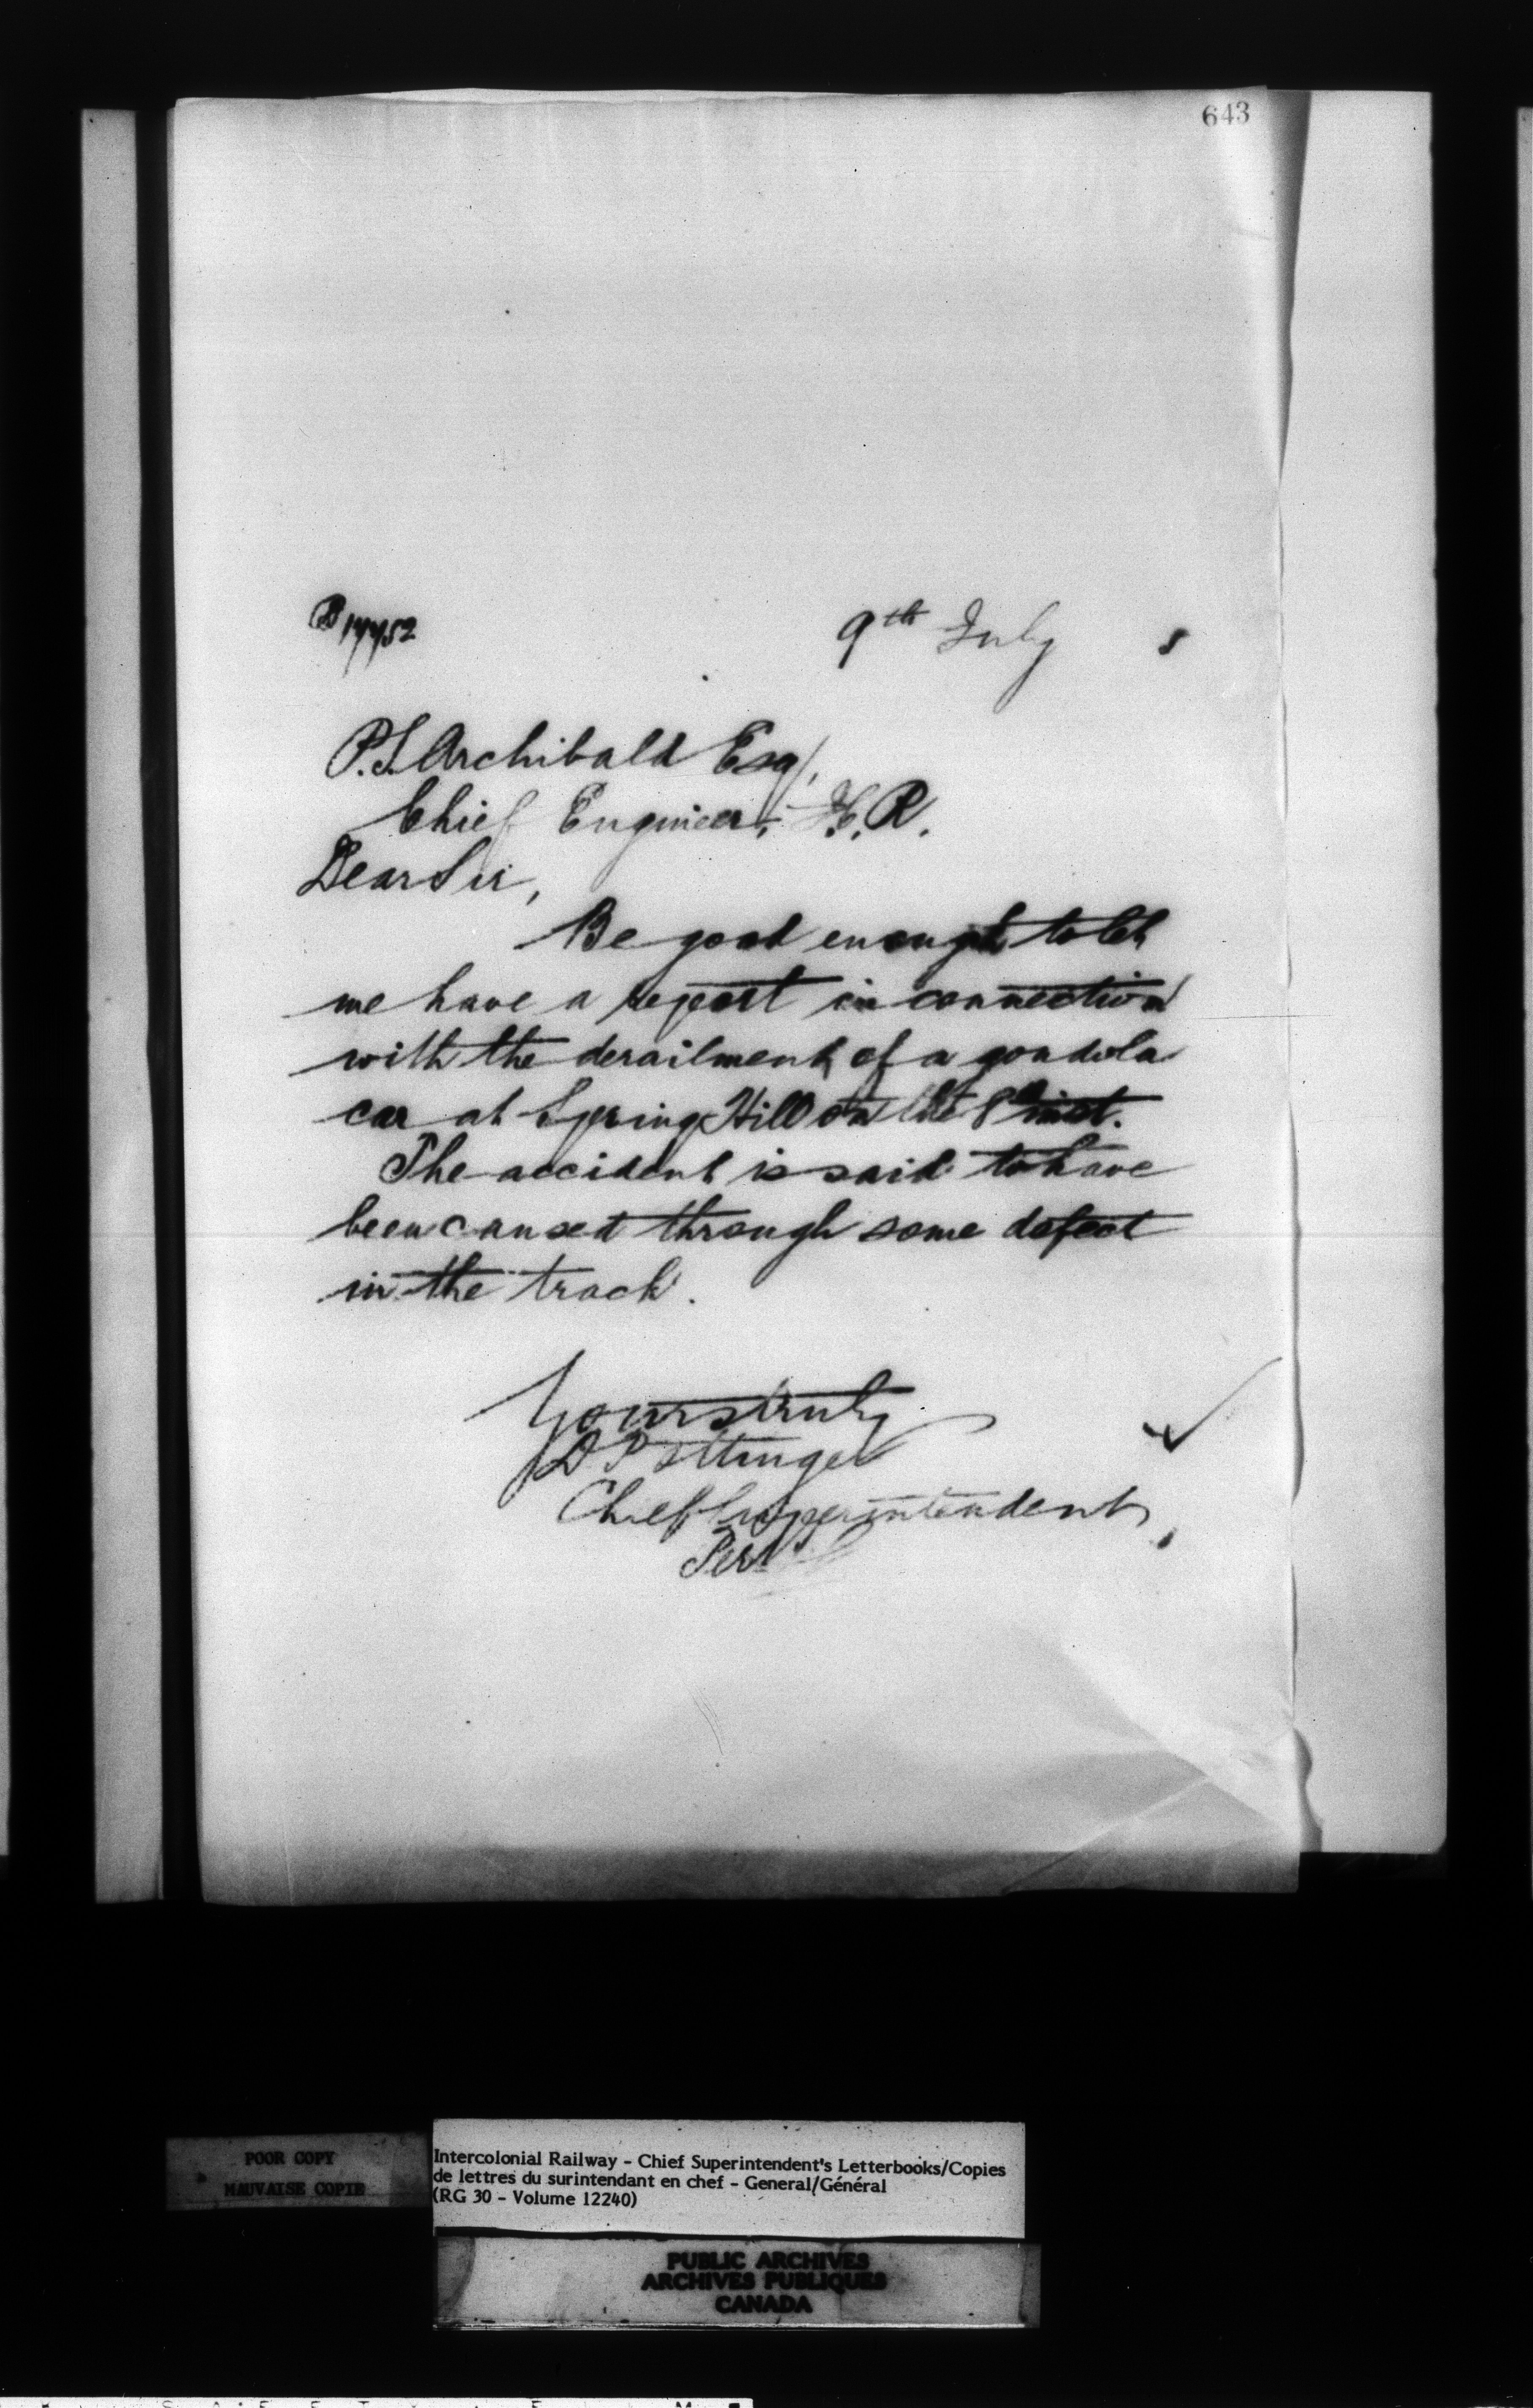 643
B 17752
9th July 5
P.S. Archibald Esq,
Chief Engineer, I.R.
Dear Sir,
Be good enough to let
me have a report in connection
with the derailment of a gondola
car at Spring Hill on the inst.
The accident is said to have
been caused through some defect
in the track.
Yours truly
D Pottinger
Chief Superintendent,
Per
POOR COPY
MAUVAISE COPIE
Intercolonial Railway - Chief Superintendent's Letterbooks/Copies
de lettres du surintendant en chef - General/Général
(RG 30 - Volume 12240)
PUBLIC ARCHIVES
ARCHIVES PUBLIQUES
CANADA